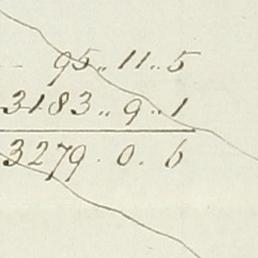 95..11..5
3183..9..1
3279.0.6